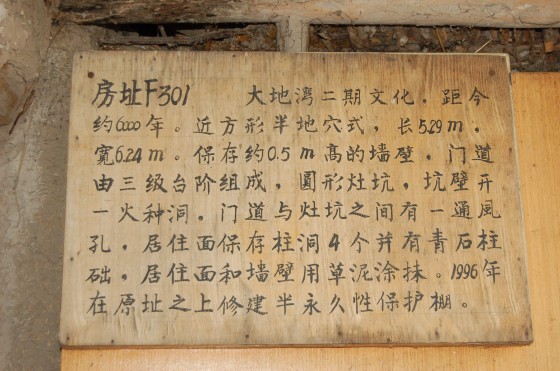 房址F301 大地湾二期文化．距今
约6000年。近方形半地穴式，长5.29m．
宽6.24m。保存约0.5m高的墙壁，门道
由三级台阶组成，圆形灶坑，坑壁开
一火种洞．门道与灶坑之间有一通風
孔，居住面保存柱洞4个并有青石柱
础，居住面和墙壁用草泥涂抹。1996年
在原址之上修建半永久性保护棚。